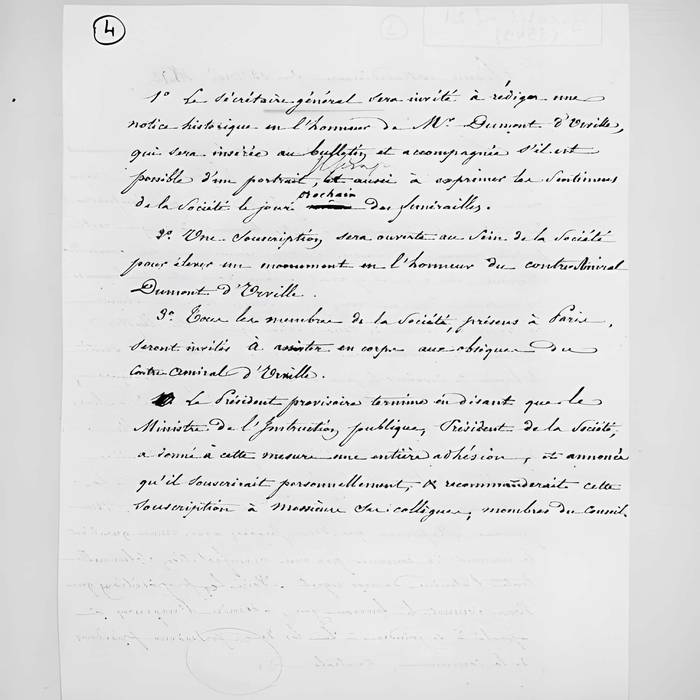 4
1º Le sécrétaire général sera invité à rédiger une
notice historique en l'honneur de Mr Dumont d'Urville,
qui sera insérée au bulletin et accompagnée s'il est
possible d'un portrait, et aussi à exprimer les sentimens
prochain
de la Société le jour des funérailles.
2º. Une souscription sera ouverte au sein de la Société
pour élever un monument en l'honneur du contre Amiral
Dumont d'Urville.
3º Tous les membres de la Société, présens à Paris,
seront invités à assister en corps aux obsèques du
contre amiral d'Urville.
Le Président provisoire termine en disant que le
Ministre de l'Instruction publique, Président de la Société,
a donné à cette mesure une entière adhésion, et annoncé
qu'il souscrirait personnellement, & recommanderait cette
souscription à messieurs ses collègues, membres du Conseil.